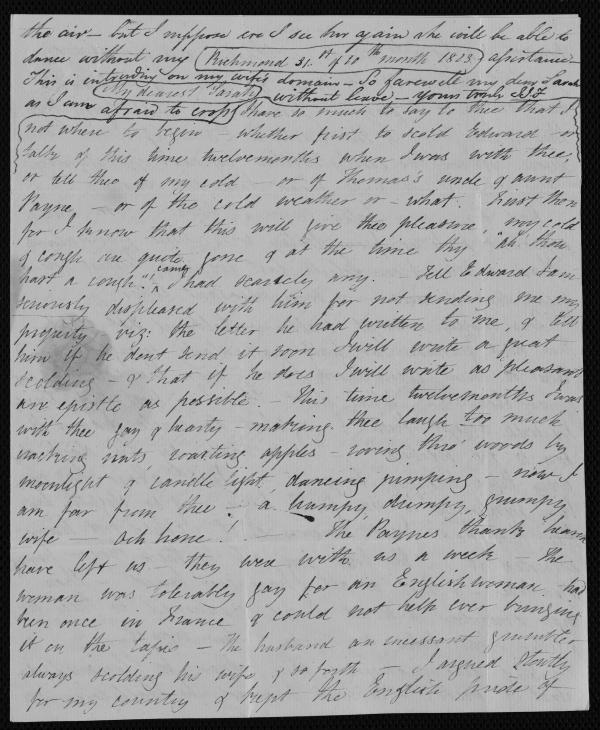 the air – but I suppose ere I see her again she will be able to
dance without my (Richmond 31.st of 10th month 1823) assistance –
This is intruding on my wife's domain – So farewell my dear Sarah
My dearest Sarah without leave – Yours truly
as I am afraid to crop I have so much to say to thee that I
not where to begin – whether first to scold Edward – or
talk of this time twelvemonths when I was with thee,
or tell thee of my cold – or of Thomas's uncle & aunt
Payne – or of the cold weather or – what. First then
for I know that this will give thee pleasure, my cold
& cough are quite gone & at the time thy "ah thou
hast a cough" came I had scarcely any. – Tell Edward I am
seriously displeased with him for not sending me my
property viz: the letter he had written to me, & tell
him if he dont send it soon I will write a great
scolding – & that if he does I will write as pleasant
an epistle as possible. – This time twelvemonths I was
with thee gay & hearty – making thee laugh too much
cracking nuts, roasting apples – roving thro' woods by
moonlight & candle light, dancing jumping – now I
am far from thee – a humpy, dumpy, grumpy
wife – och hone! – The Paynes thank heaven
have left us – they were with us a week – the
woman was tolerably gay for an English woman. had
been once in France & could not help ever bringing
it on the tapis – the husband an incessant grumbler
always scolding his wife & so forth – I argued stoutly
for my country & kept the English pride of